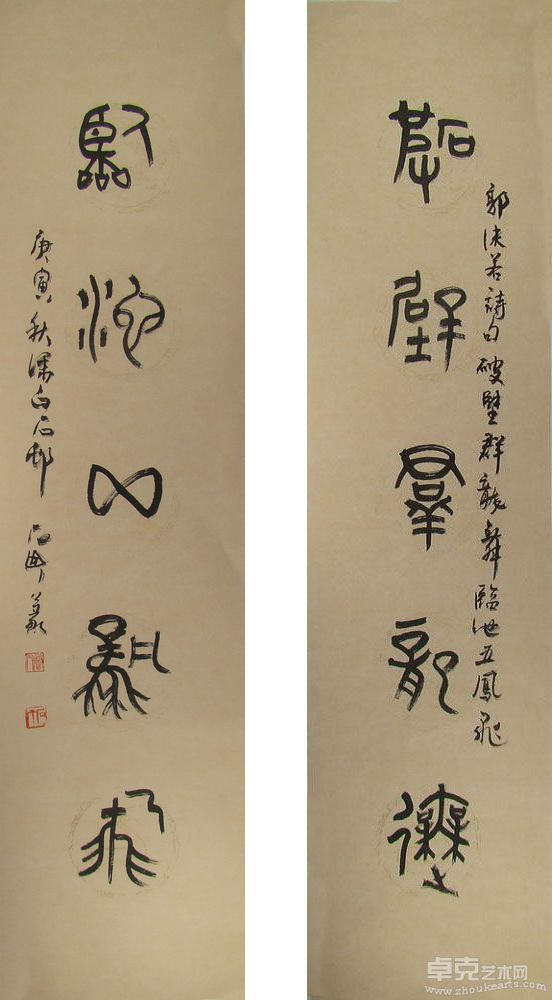 破壁群龍舞
郭沫若詩句破壁群龍舞臨池五鳳飛
臨池五鳳飛
庚寅秋深白石邨
卓克艺术网
www.zhoukearts.com